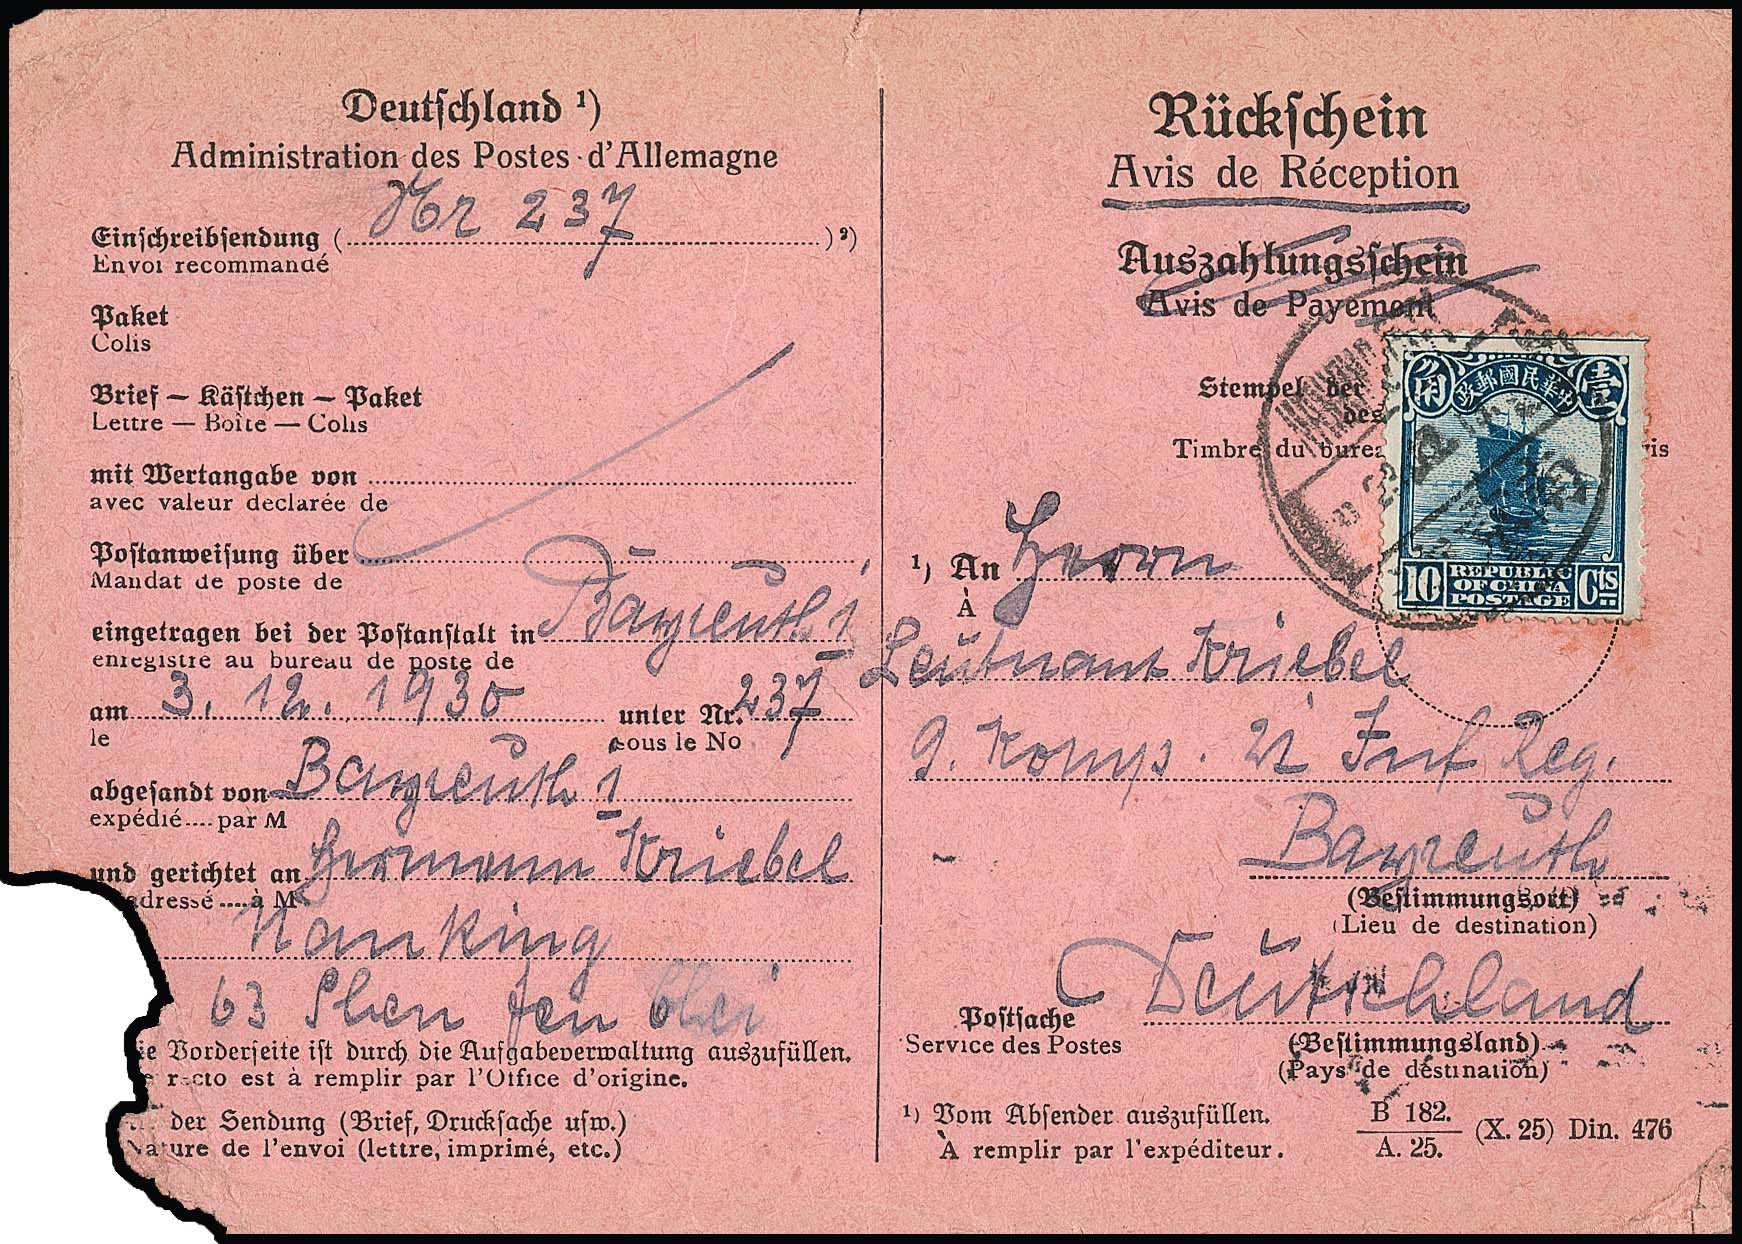 Deutschland ¹)
Administration des Postes d'Allemagne
Einschreibsendung ( Nr 237 ) ²)
Envoi recommandé
Paket
Colis
Brief — Kästchen — Paket
Lettre — Boîte — Colis
mit Wertangabe von
avec valeur déclarée de
Postanweisung über
Mandat de poste de
eingetragen bei der Postanstalt in Bayreuth 1
enregistré au bureau de poste de
am 3. 12. 1930 unter Nr. 237
le sous le No
abgesandt von Bayreuth 1
expédié .... par M
und gerichtet an Hermann Kriebel
adressé .... à M
Nanking
63 
der Vorderseite ist durch die Aufgabeverwaltung auszufüllen.
recto est à remplir par l'Office d'origine.
der Sendung (Brief, Drucksache usw.)
Nature de l'envoi (lettre, imprimé, etc.)
Rückschein
Avis de Réception
Auszahlungsschein
Avis de Payement
Stempel der
des
Timbre du burea vis
中華民國郵政
角 壹
10 REPUBLIC OF CHINA POSTAGE Cts
¹) An Herrn
À
Leutnant Kriebel
9. Komp. 21 Inf Reg.
Bayreuth
(Bestimmungsort)
(Lieu de destination)
Deutschland
Postsache
Service des Postes
(Bestimmungsland)
(Pays de destination)
¹) Vom Absender auszufüllen.
À remplir par l'expéditeur.
B 182.
A. 25.
(X. 25) Din. 476